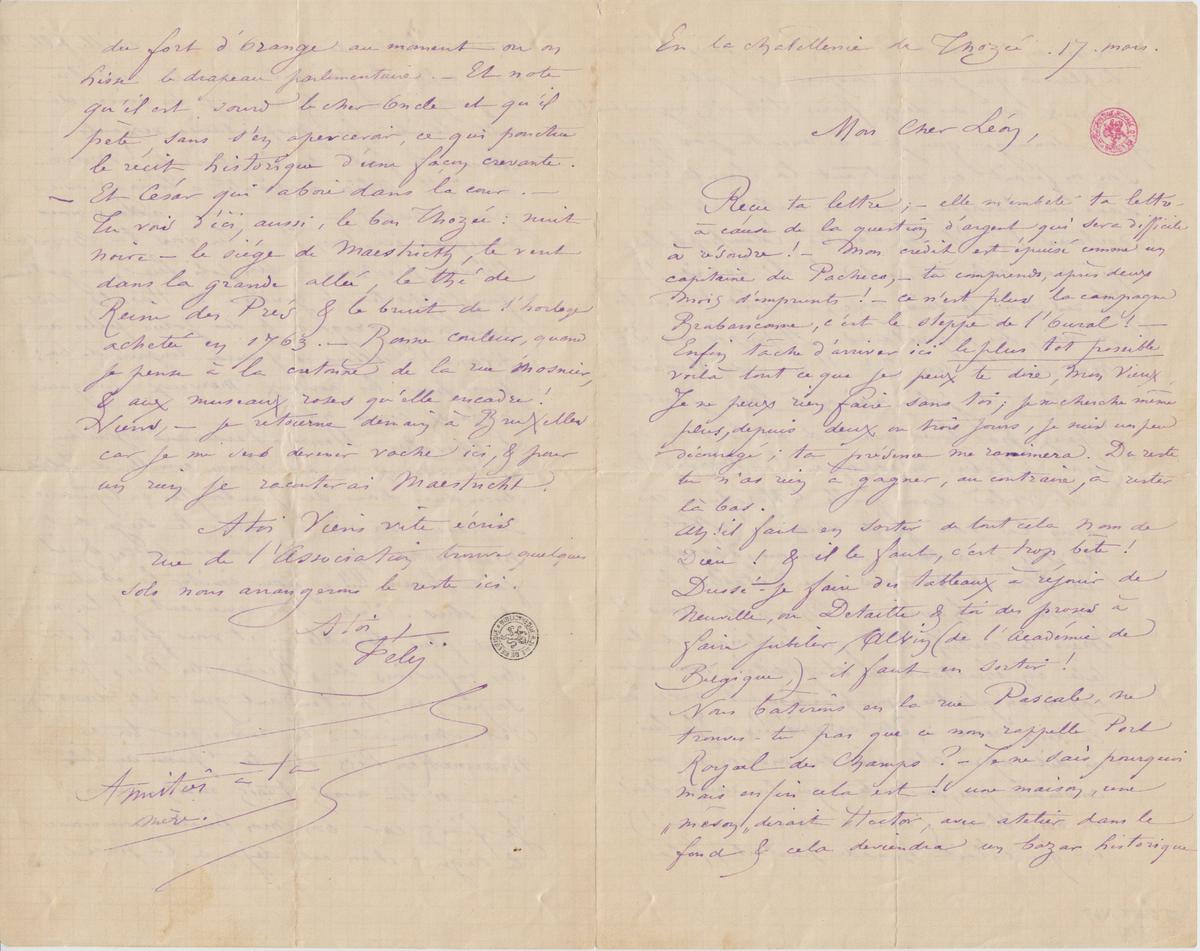 En la châtellenie de Thozée . 17 . mars.
Mon Cher Léon,
Reçu ta lettre ; – elle m'embête ta lettre
à cause de la question d'argent qui sera difficile
à résoudre ! – Mon crédit est épuisé comme un
capitaine du Pacheco, – tu comprends, après deux
mois d'emprunts ! – ce n'est plus la campagne
Brabançonne, c'est le steppe de l'Oural ! –
Enfin tâche d'arriver ici le plus tôt possible
voilà tout ce que je peux te dire, mon vieux
Je ne peux rien faire sans toi ; je ne cherche même
plus, depuis deux ou trois jours, je suis un peu
découragé ; ta présence me ranimera. Du reste
tu n'as rien à gagner, au contraire, à rester
là bas.
Ah ! il faut en sortir de tout cela nom de
Dieu ! & il le faut, c'est trop bête !
Dussé-je faire des tableaux à réjouir de
Neuville, ou Detaille & toi des proses à
faire jubiler, Alvin (de l'Académie de
Belgique,) – il faut en sortir !
Nous bâtirons en la rue Pascale, ne
trouves-tu pas que ce nom rappelle Port
Royal des Champs ? – Je ne sais pourquoi
mais enfin cela est ! une maison, une
„meson„ dirait Hector, avec atelier dans le
fond & cela deviendra un bazar historique
du fort d'Orange au moment où on
hisse le drapeau parlementaire. – Et note
qu'il est sourd le cher Oncle et qu'il
pète, sans s'en apercevoir, ce qui ponctue
le récit historique d'une façon crevante.
– Et César qui aboie dans la cour. –
Tu vois d'ici, aussi, le bon Thozée : nuit
noire – le siège de Maestricht, le vent
dans la grande allée, le thé de
Reine des Prés & le bruit de l'horloge
achetée en 1763. – Bonne couleur, quand
je pense à la cretonne de la rue Mosnier,
& aux museaux roses qu'elle encadre !
Viens, – je retourne demain à Bruxelles
car je me sens devenir vache ici, & pour
un rien je raconterai Maestricht.
A toi Viens vite écris
rue de l'Association trouve quelques
sols nous arrangerons le reste ici.
A toi,
Fély
Amitiés à ta
mère.